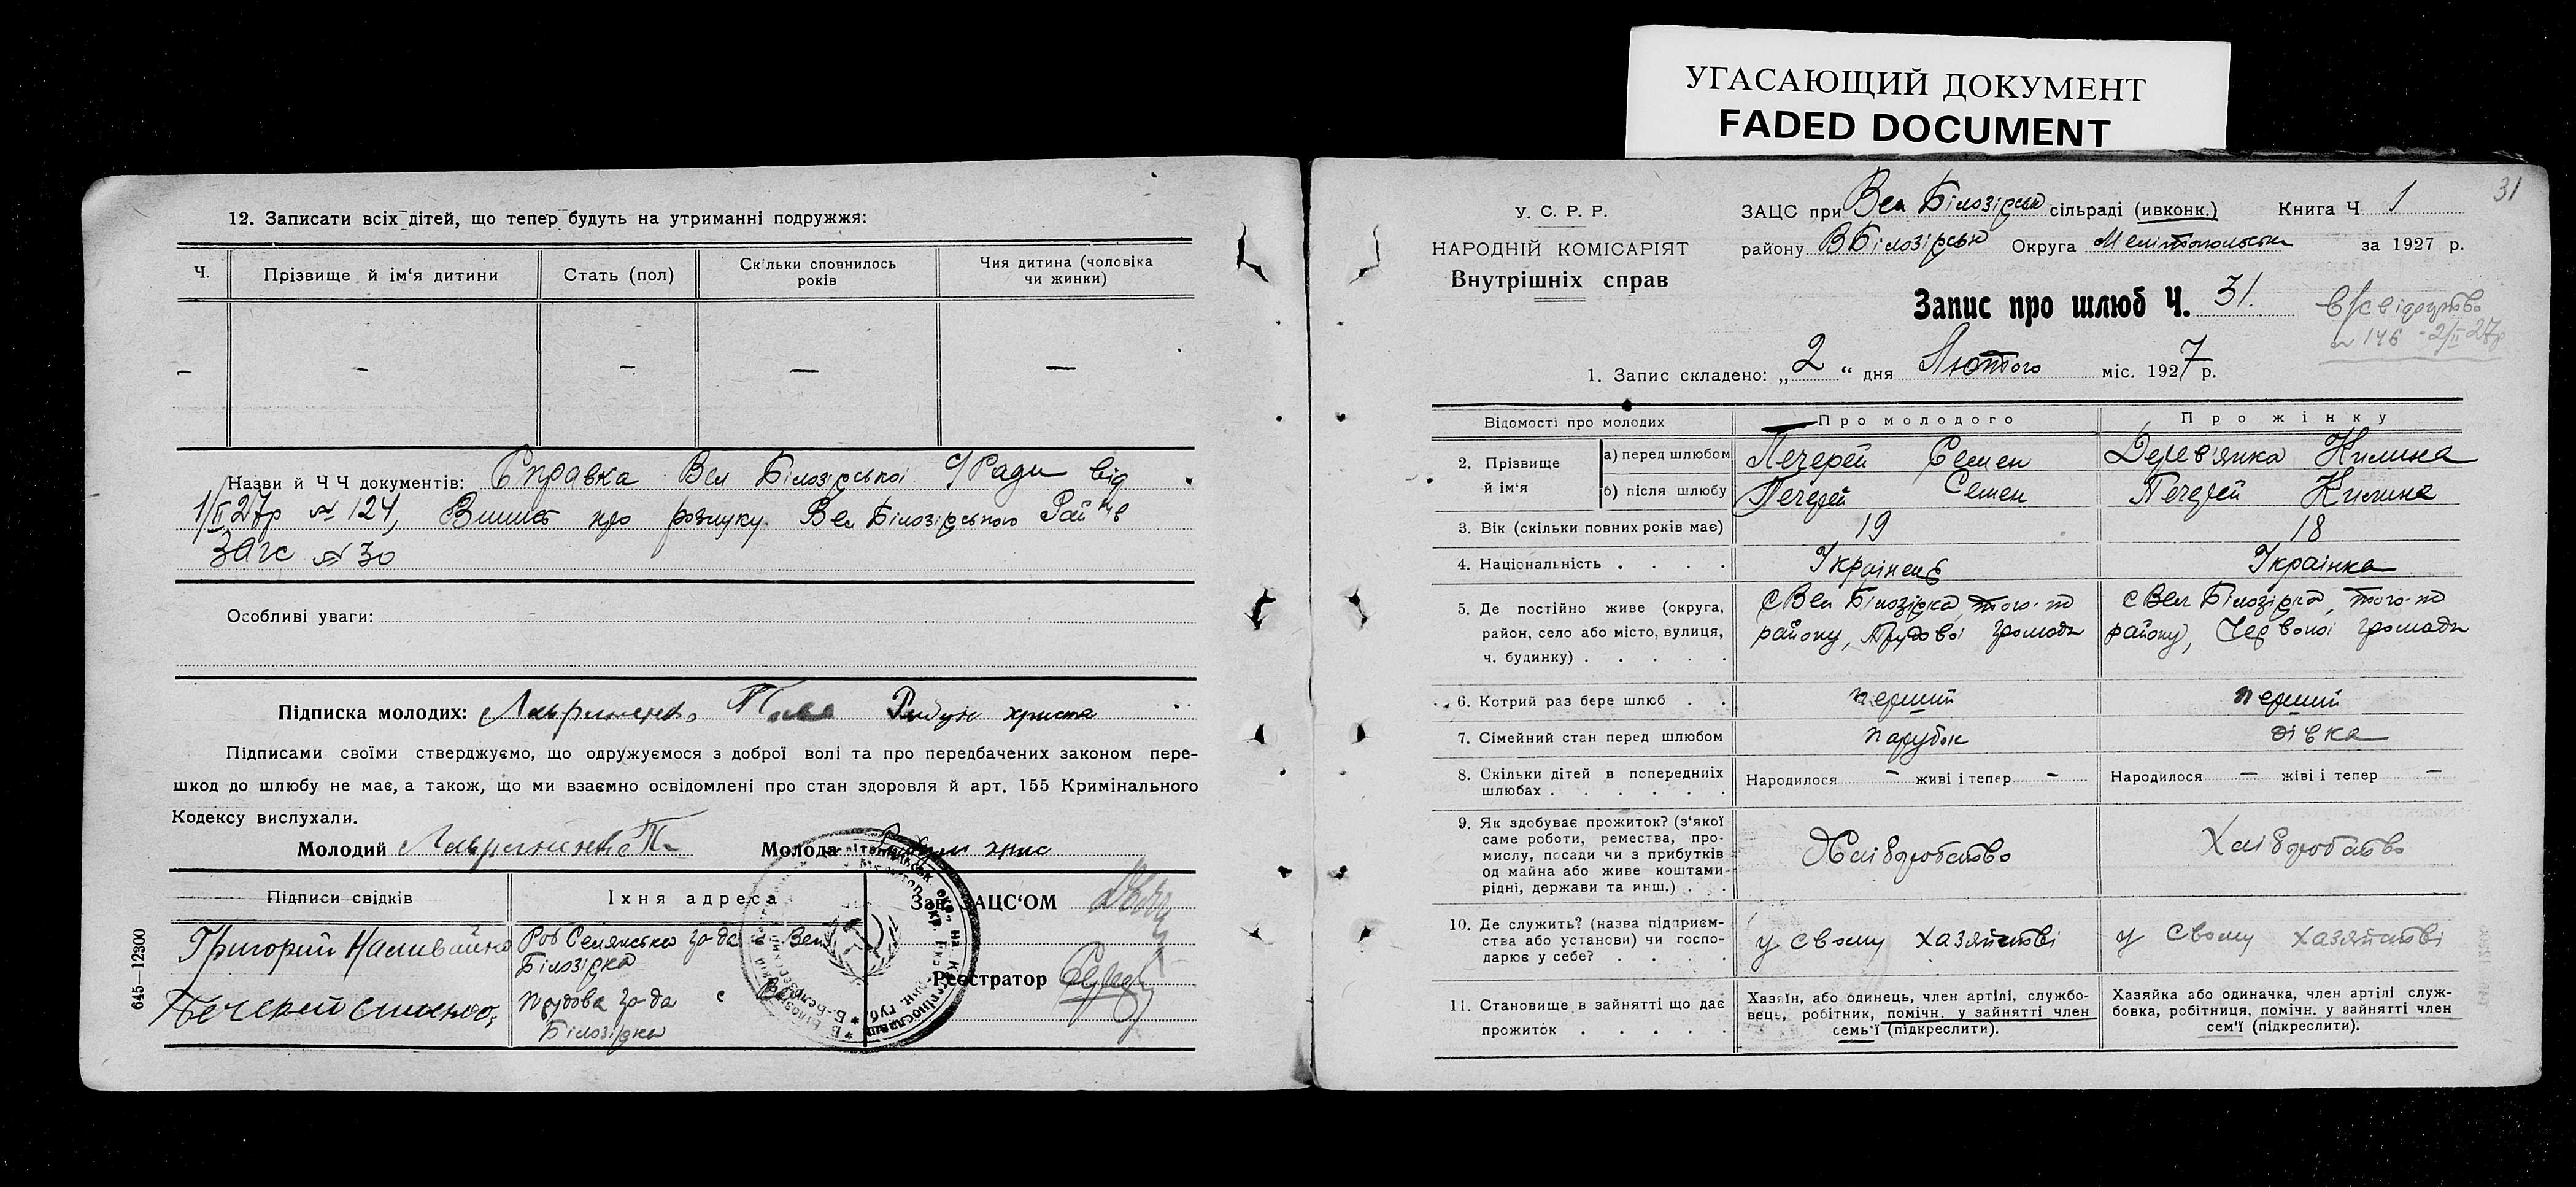 УГАСАЮЩИЙ ДОКУМЕНТ
FADED DOCUMENT
12. Записати всіх дітей, що тепер будуть на утриманні подружжя:
Ч.
Прізвище й ім'я дитини
Стать (пол)
Скільки сповнилось років
Чия дитина (чоловіка чи жинки)
— — — — —
Назви й Ч Ч документів: Справка Вел Білозірської С/Ради від
1/II 27р № 124, Випись про розлуку Вел Білозірського Рай
Загс № 30
Особливі уваги:
Підписка молодих: Лавриненко
Підписами своїми стверджуємо, що одружуємося з доброї волі та про передбачених законом пере-
шкод до шлюбу не має, а також, що ми взаємно освідомлені про стан здоровля й арт. 155 Кримінального
Кодексу вислухали.
Молодий Лавриненко П. Молода
Підписи свідків
Їхня адреса
Зав. ЗАЦС'ОМ
Григорий Наливайко
Роб Селянська го-да Вел
Білозірка
Реєстратор
Печерей
Трудова го-да с Вел
Білозірка
645—12300
31
У. С. Р. Р.
НАРОДНІЙ КОМІСАРІЯТ
Внутрішніх справ
ЗАЦС при Вел Білозірськ сільраді (ивконк.) Книга Ч 1
району ВБілозірськ Округа Мелітопольськ за 1927 р.
Запис про шлюб Ч. 31.
в/свідоцтво
№ 146 2/II 27р
1. Запис складено: „2“ дня Лютого міс. 1927 р.
Відомості про молодих
Про молодого
Про жінку
2. Прізвище й ім'я
а) перед шлюбом
Печерей Семен
Дерев'янка Килина
б) після шлюбу
Печерей Семен
Печерей Килина
3. Вік (скільки повних років має)
19
18
4. Національність . . . .
Українець
Українка
5. Де постійно живе (округа,
район, село або місто, вулиця,
ч. будинку) . . . . .
с Вел Білозірка, того-по
району, Трудової громади
с Вел Білозірка, того-по
району, Червоної громади
6. Котрий раз бере шлюб . .
перший
перший
7. Сімейний стан перед шлюбом
парубок
дівка
8. Скільки дітей в попередніх
шлюбах . . . . . .
Народилося — живі і тепер —
Народилося — живі і тепер —
9. Як здобуває прожиток? (з'якої
саме роботи, ремества, про-
мислу, посади чи з прибутків
од майна або живе коштами
рідні, держави та инш.) . . .
Хліборобство
Хліборобство
10. Де служить? (назва підприєм-
ства або установи) чи госпо-
дарює у себе? . . . .
у свому хазяйстві
у свому хазяйстві
11. Становище в зайнятті що дає
прожиток . . . . .
Хазяїн, або одинець, член артілі, службо-
вець, робітник, помічн. у зайнятті член
семь'ї (підкреслити).
Хазяйка або одиначка, член артілі служ-
бовка, робітниця, помічн. у зайнятті член
сем'ї (підкреслити).